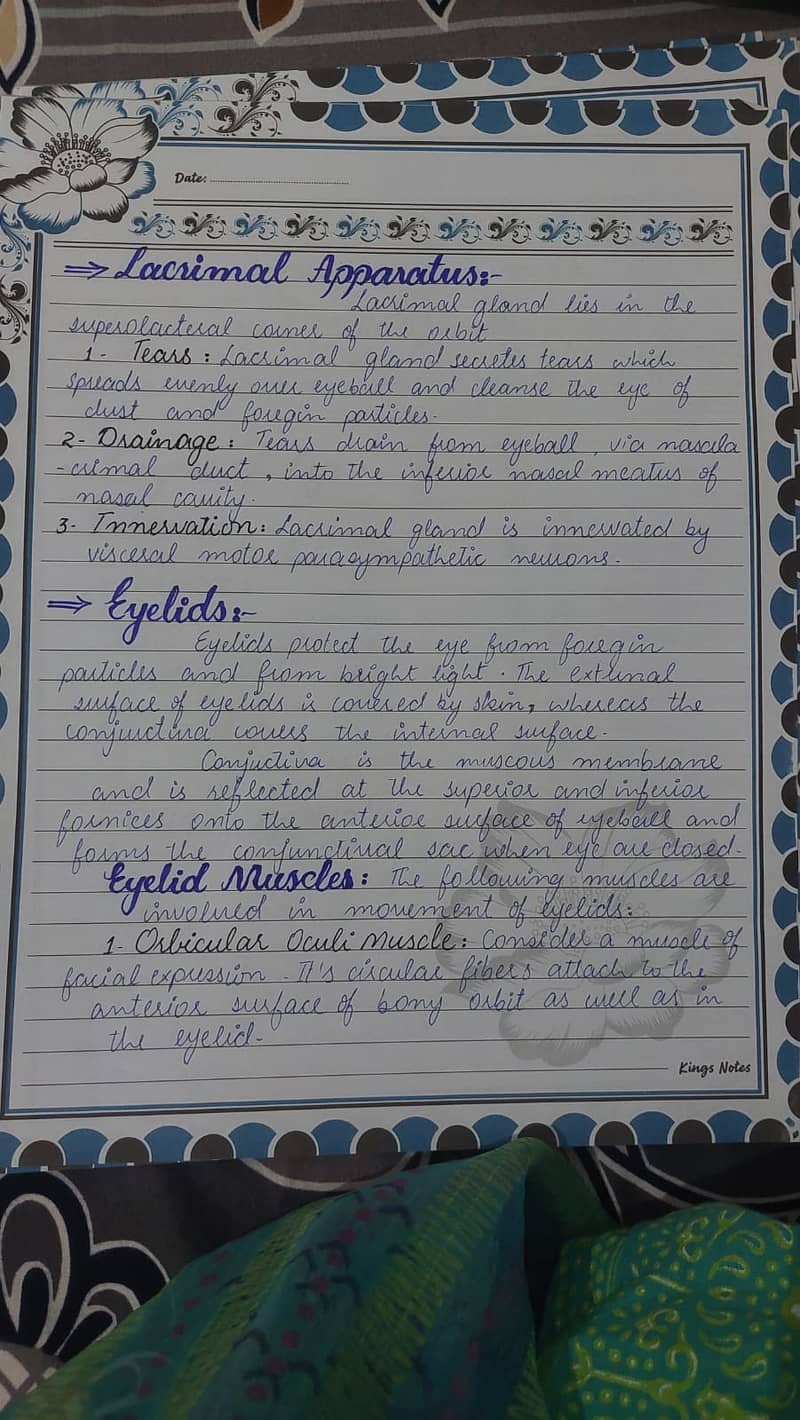 Date:
⇒ Lacrimal Apparatus:-
Lacrimal gland lies in the
superolacteral corner of the orbit
1- Tears : Lacrimal gland secretes tears which
spreads evenly over eyeball and cleanse the eye of
dust and foregin particles.
2- Drainage : Tears drain from eyeball, via nasola
-crimal duct, into the inferior nasal meatus of
nasal cavity.
3- Innervation: Lacrimal gland is innervated by
visceral motor parasympathetic neurons.
⇒ Eyelids:-
Eyelids protect the eye from foregin
particles and from bright light. The external
surface of eyelids is covered by skin, whereas the
conjunctiva covers the internal surface.
Conjuctiva is the muscous membrane
and is reflected at the superior and inferior
fornices onto the anterior surface of eyeball and
forms the confunctival sac when eye are closed.
Eyelid Muscles: The following muscles are
involved in movement of eyelids:
1- Orbicular Oculi Muscle: Consider a muscle of
facial expression. It's circular fibers attach to the
anterior surface of bony orbit as well as in
the eyelid.
Kings Notes